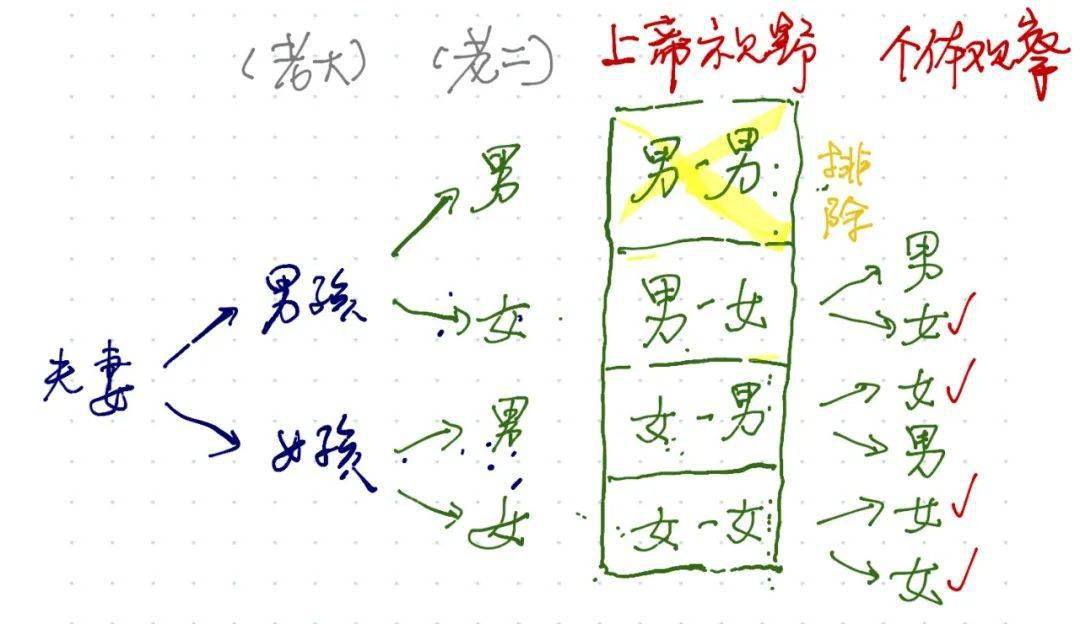 (老大) (老二) 上帝视野 个体观察
男 男-男 排除
男孩 女 男-女 男
女✓
夫妻
女孩 男 女-男 女✓
男
女 女-女 女✓
女✓